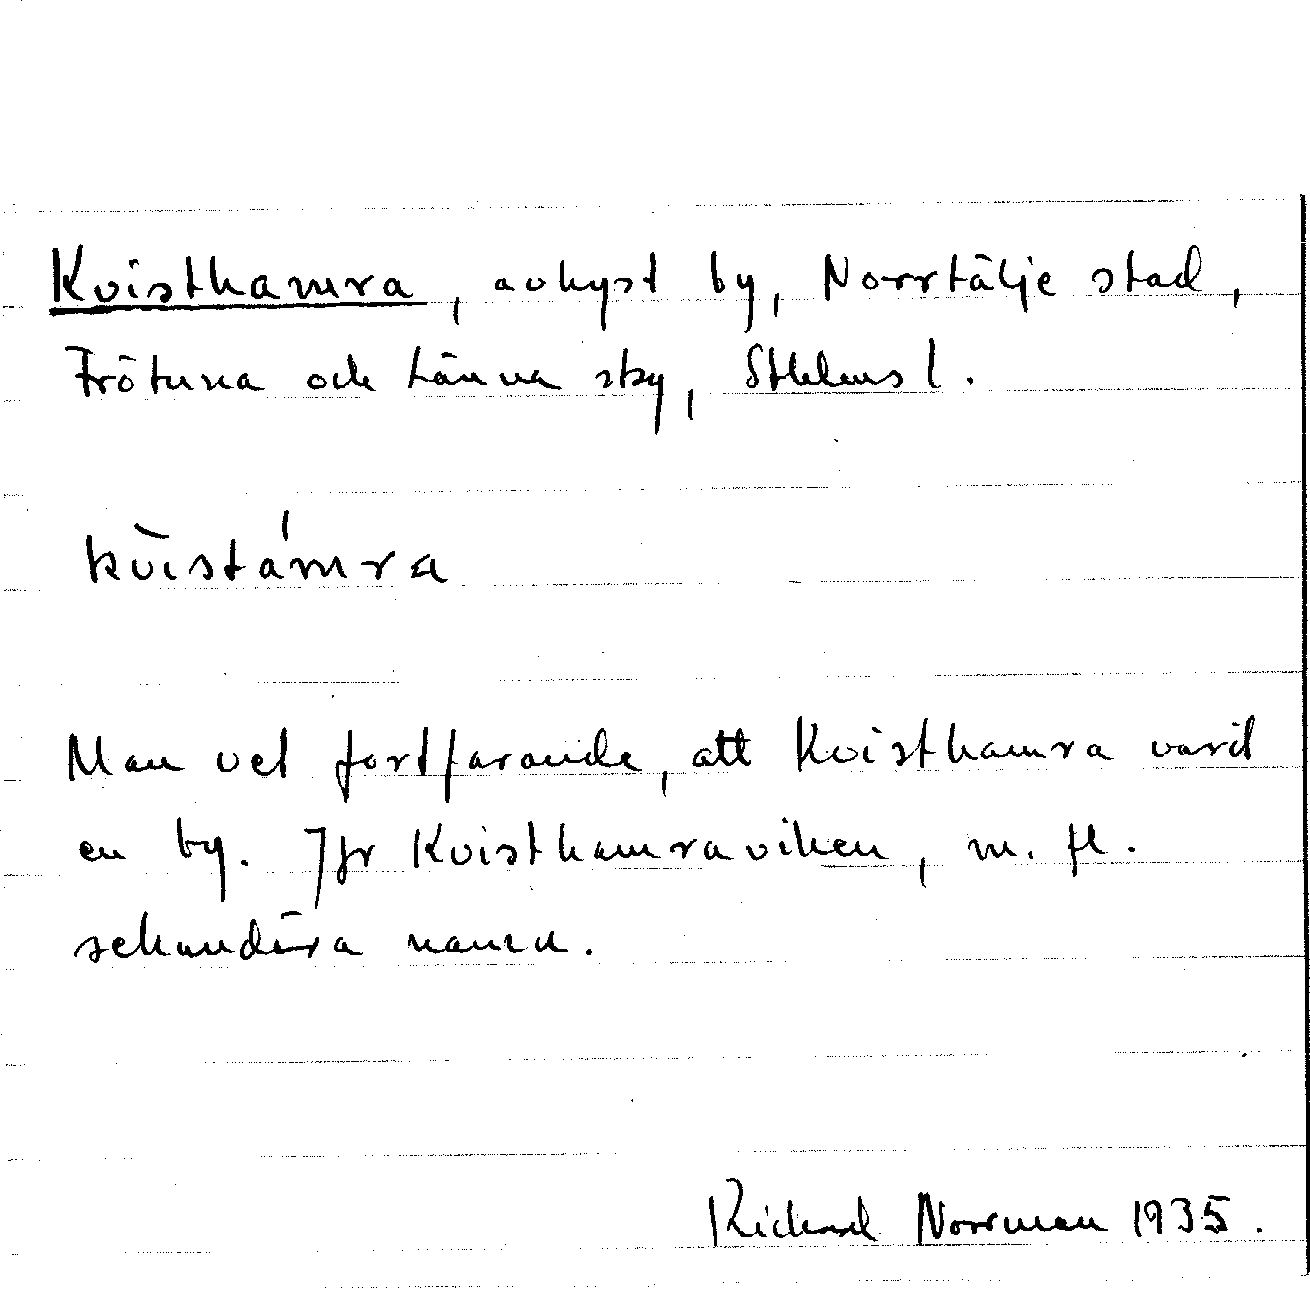 Kvisthamra, avhyst by, Norrtälje stad,
Frötuna och Länna sky, Sthlms l.
kv̀istámra
Man vet fortfarande, att Kvisthamra varit
en by. Jfr Kvisthamraviken, m. fl.
sekundära namn.
Richard Norrman 1935.